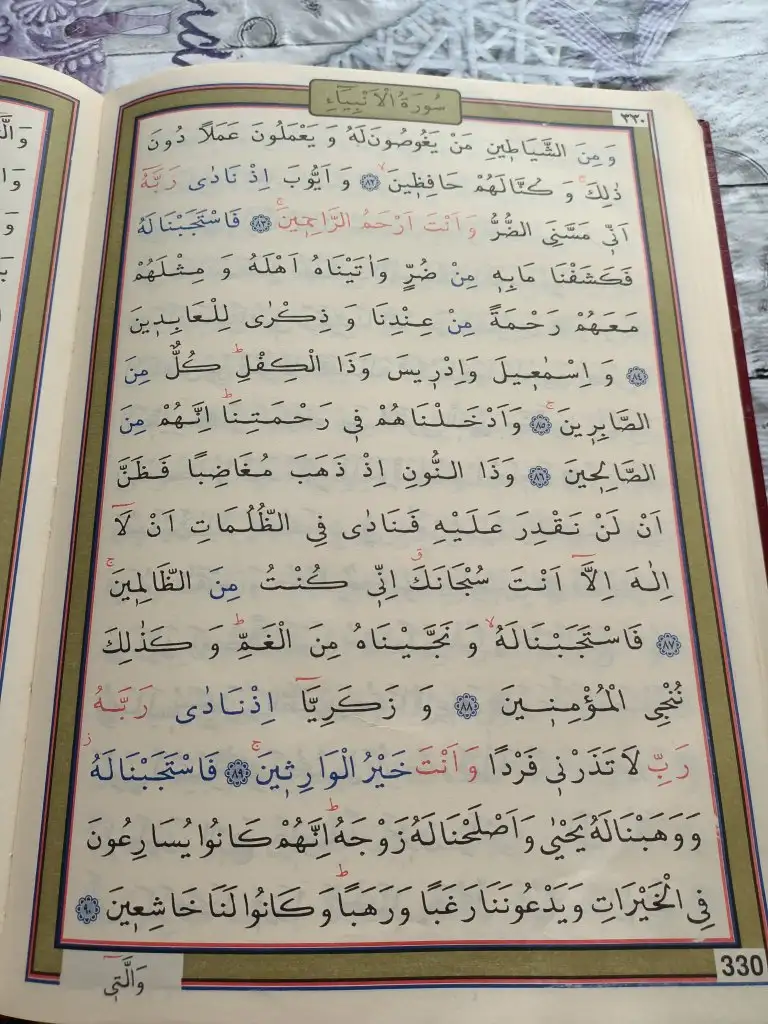 سُورَةُ الْاَنْبِيَاءِ
٣٣٠
وَ مِنَ الشَّيَاطٖينِ مَنْ يَغُوصُونَ لَهُ وَ يَعْمَلُونَ عَمَلاً دُونَ
ذٰلِكَ وَ كُنَّا لَهُمْ حَافِظٖينَ ﴿٨٢﴾ وَ اَيُّوبَ اِذْ نَادٰى رَبَّهُٓ
اَنّٖى مَسَّنِىَ الضُّرُّ وَ اَنْتَ اَرْحَمُ الرَّاحِمٖينَ ﴿٨٣﴾ فَاسْتَجَبْنَا لَهُ
فَكَشَفْنَا مَا بِهٖ مِنْ ضُرٍّ وَاٰتَيْنَاهُ اَهْلَهُ وَ مِثْلَهُمْ
مَعَهُمْ رَحْمَةً مِنْ عِنْدِنَا وَ ذِكْرٰى لِلْعَابِدٖينَ
﴿٨٤﴾ وَ اِسْمٰعٖيلَ وَاِدْرٖيسَ وَذَا الْكِفْلِ كُلٌّ مِنَ
الصَّابِرٖينَ ﴿٨٥﴾ وَاَدْخَلْنَاهُمْ فٖى رَحْمَتِنَا اِنَّهُمْ مِنَ
الصَّالِحٖينَ ﴿٨٦﴾ وَذَا النُّونِ اِذْ ذَهَبَ مُغَاضِبًا فَظَنَّ
اَنْ لَنْ نَقْدِرَ عَلَيْهِ فَنَادٰى فِى الظُّلُمَاتِ اَنْ لَٓا
اِلٰهَ اِلَّٓا اَنْتَ سُبْحَانَكَ اِنّٖى كُنْتُ مِنَ الظَّالِمٖينَ
﴿٨٧﴾ فَاسْتَجَبْنَا لَهُ وَ نَجَّيْنَاهُ مِنَ الْغَمِّ وَ كَذٰلِكَ
نُنْجِى الْمُؤْمِنٖينَ ﴿٨٨﴾ وَ زَكَرِيَّٓا اِذْ نَادٰى رَبَّهُ
رَبِّ لَا تَذَرْنٖى فَرْدًا وَ اَنْتَ خَيْرُ الْوَارِثٖينَ ﴿٨٩﴾ فَاسْتَجَبْنَا لَهُ
وَوَهَبْنَا لَهُ يَحْيٰى وَاَصْلَحْنَا لَهُ زَوْجَهُ اِنَّهُمْ كَانُوا يُسَارِعُونَ
فِى الْخَيْرَاتِ وَيَدْعُونَنَا رَغَبًا وَرَهَبًا وَكَانُوا لَنَا خَاشِعٖينَ ﴿٩٠﴾
330
وَالَّتٖٓى